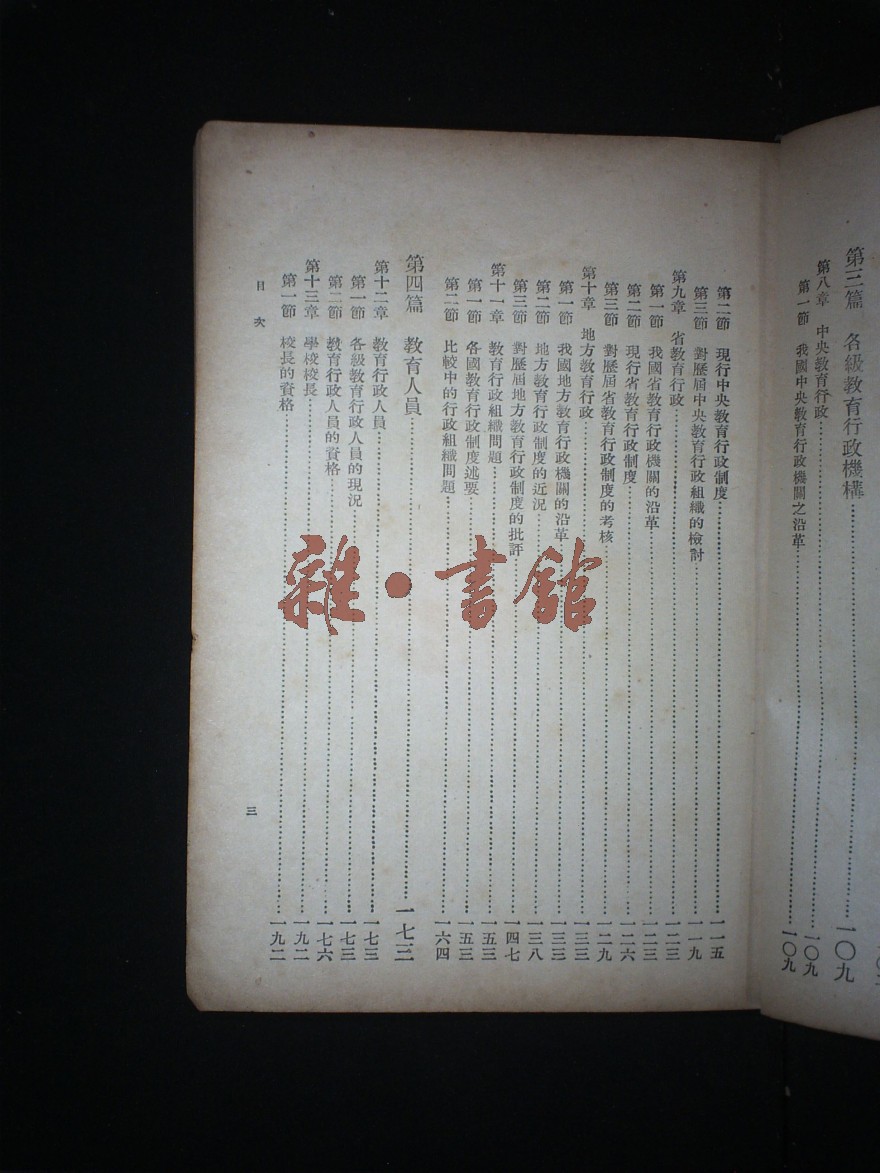 第三篇 各級教育行政機構 一〇九
第八章 中央教育行政 一〇九
第一節 我國中央教育行政機關之沿革 一〇九
第二節 現行中央教育行政制度 一一五
第三節 對歷屆中央教育行政組織的檢討 一一九
第九章 省教育行政 一二三
第一節 我國省教育行政機關的沿革 一二三
第二節 現行省教育行政制度 一二六
第三節 對歷屆省教育行政制度的考核 一二九
第十章 地方教育行政 一三三
第一節 我國地方教育行政機關的沿革 一三三
第二節 地方教育行政制度的近況 一三八
第三節 對歷屆地方教育行政制度的批評 一四七
第十一章 教育行政組織問題 一五三
第一節 各國教育行政制度述要 一五三
第二節 比較中的行政組織問題 一六四
第四篇 教育人員 一七三
第十二章 教育行政人員 一七三
第一節 各級教育行政人員的現況 一七三
第二節 教育行政人員的資格 一七六
第十三章 學校校長 一九二
第一節 校長的資格 一九二
目次 三
雜·書館